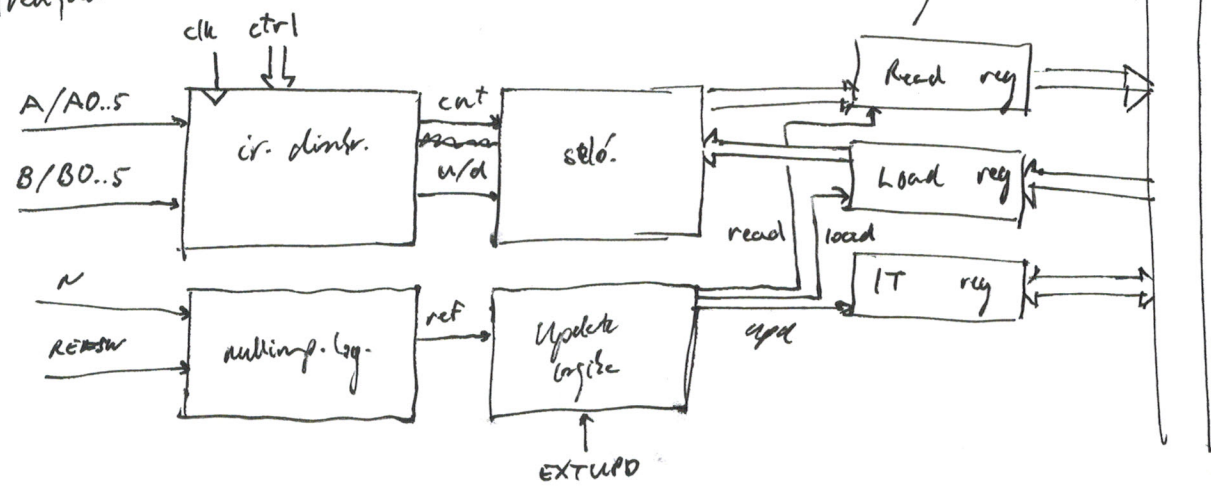 clk ctrl
A/A0..5
B/B0..5
ir. diszkr.
cnt
u/d
száló.
Read reg
Load reg
IT reg
read
load
upd
N
REFSW
nullimp. log.
ref
Update
logika
EXTUPD